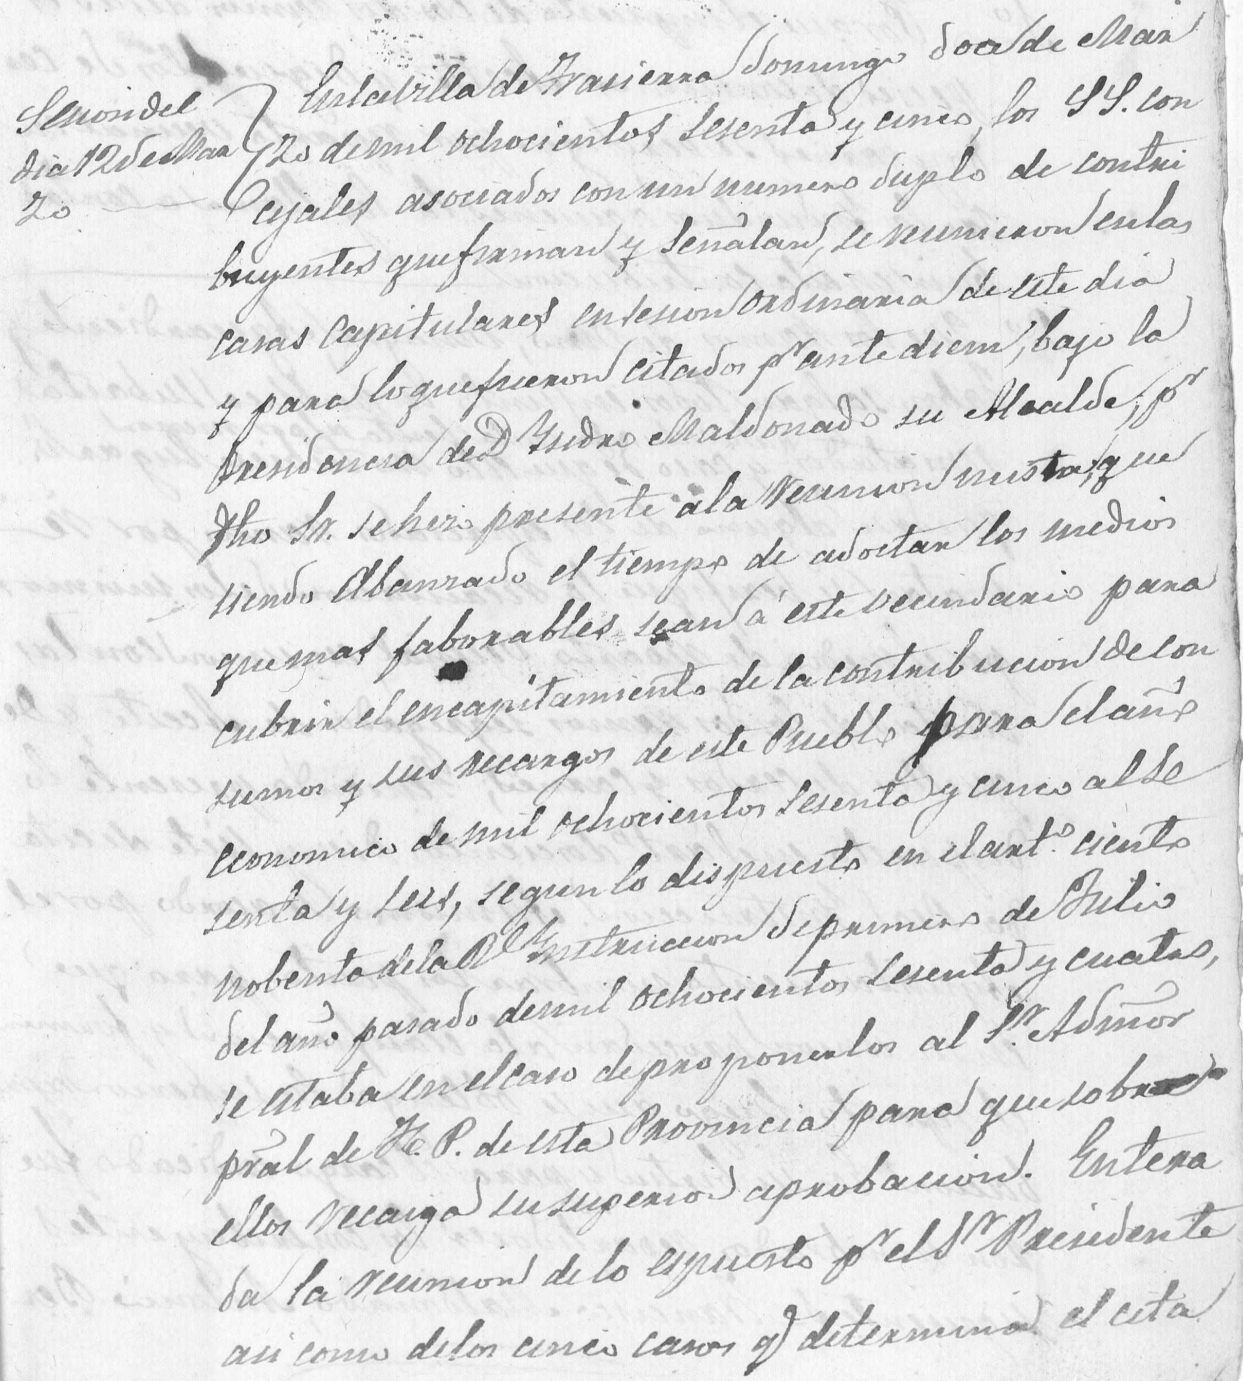 Sesion del
dia 12 de Mar
zo
En la villa de Frasierra domingo doce de Mar
zo de mil ochocientos sesenta y cinco, los SS. con
cejales asociados con un numero duplo de contri
buyentes que firman y señalan, se reunieron en las
casas Capitulares en sesion ordinaria de este dia
y para lo que fueron citados pr ante diem, bajo la
Presidencia de D Ysidro Maldonado su Alcalde, pr
dho Sr. se hizo presente a la reunion mista, que
siendo Abanzado el tiempo de adoctar los medios
que mas faborables sean á este vecindario para
cubrir el encapitamiento de la contribucion de con
sumos y sus recargos de este Pueblo para el año
economico de mil ochocientos sesenta y cinco al se
senta y seis, segun lo dispuesto en el art.o ciento
nobenta de la Rl Ynstruccion de primero de Julio
del año pasado de mil ochocientos sesenta y cuatro,
se estaba en el caso de proponerlos al Sr. Admor
pral de H. P. de esta Provincia para que sobre
ellos recaiga su superior aprobacion. Entera
da la reunion de lo espuesto pr el Sr Presidente
asi como de los cinco casos q determina el cita